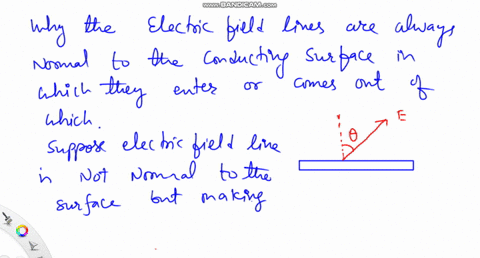 WWW.BANDICAM.COM
Why the Electric field lines are always
Normal to the Conducting Surface in
which they enter or comes out of
which.
Suppose electric field line
in Not Normal to the
surface but making
E
θ